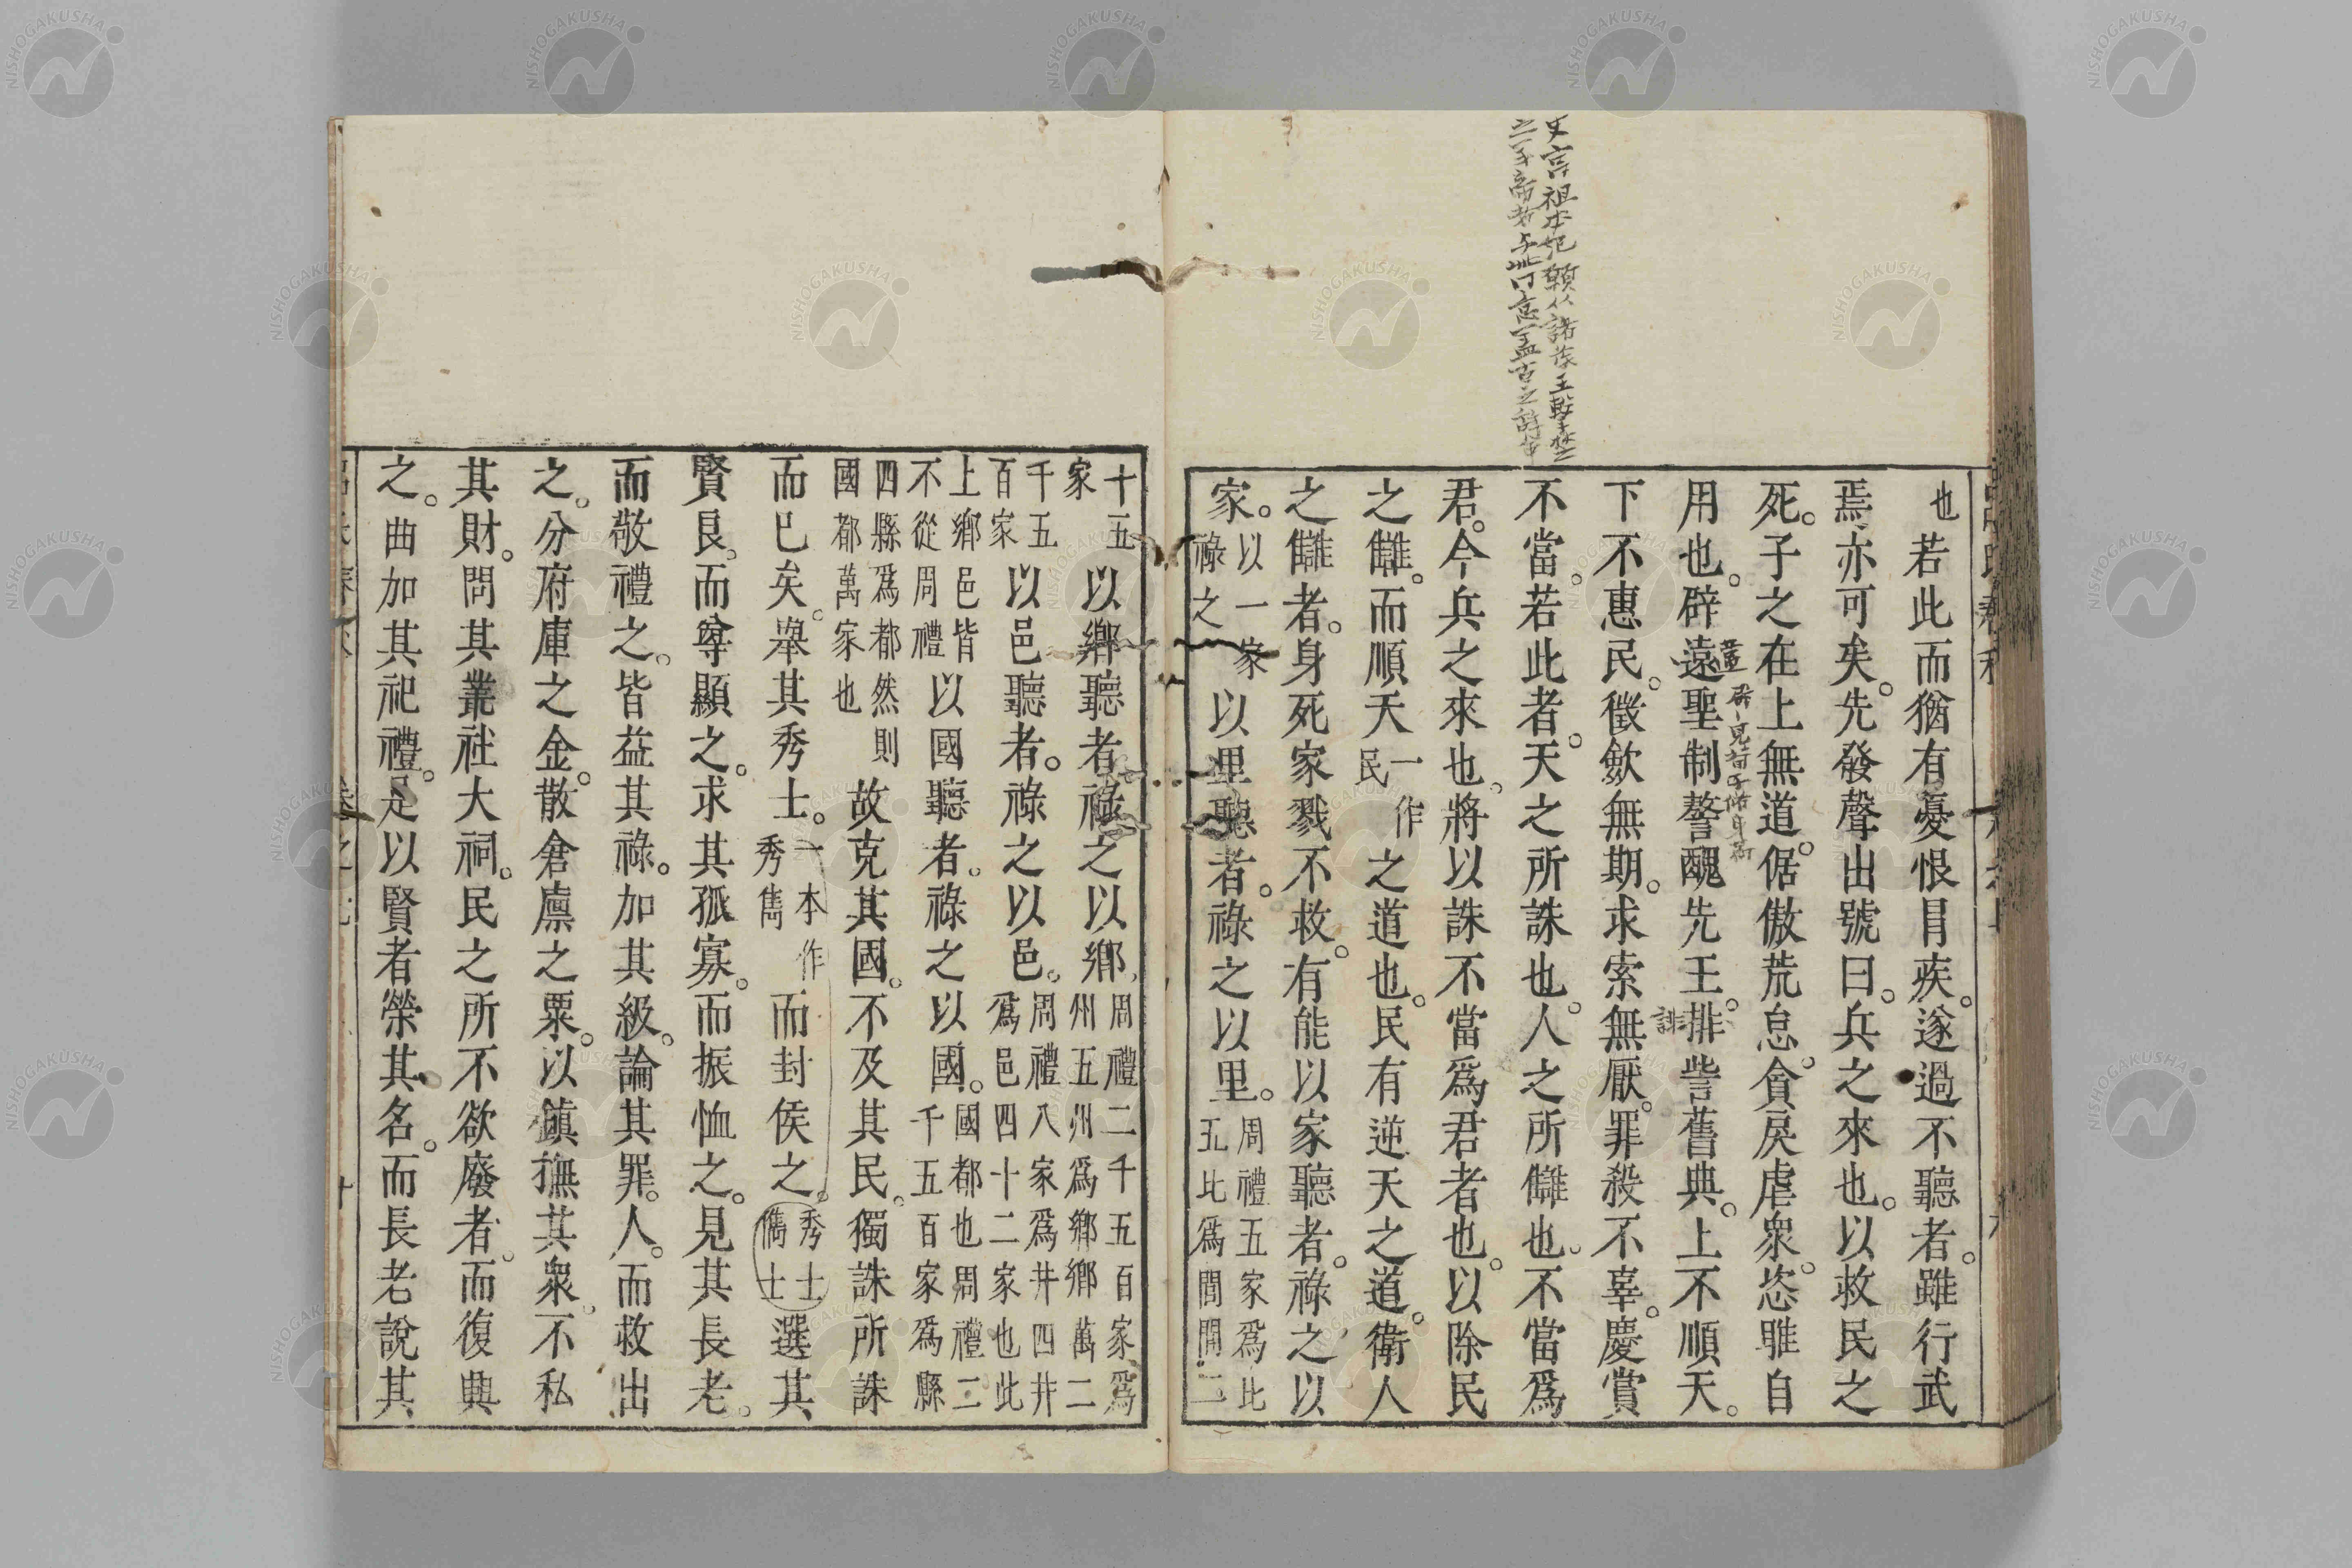 史高祖本紀願從諸侯王擊楚
也若此而猶有憂恨冒疾。遂過不聽者。雖行武
焉亦可矣。先發聲出號曰。兵之來也。以救民之
死。子之在上無道。倨傲荒怠。貪戾虐衆。恣睢自
用也。辟遠聖制。謷醜先王。排訾舊典。上不順天。
誹
下不惠民。徵斂無期。求索無厭。罪殺不辜。慶賞
不當。若此者。天之所誅也。人之所讎也。不當爲
君。今兵之來也。將以誅不當爲君者也。以除民
之讎。而順天一作民之道也。民有逆天之道。衛人
之讎者。身死家戮不救。有能以家聽者。祿之以
家。以一家祿之以里聽者。祿之以里。周禮五家爲比五比爲閭閭二
十五家以鄉聽者。祿之以鄉。周禮二千五百家爲州五州爲鄉鄉萬二
千五百家以邑聽者。祿之以邑。周禮八家爲井四井爲邑四十二家也此
上鄉邑皆不從周禮以國聽者。祿之以國。國都也周禮二千五百家爲縣
四縣爲都然則國都萬家也故克其國。不及其民。獨誅所誅
而已矣。舉其秀士。一本作秀雋而封侯之。秀士儁士選其
賢良。而尊顯之。求其孤寡。而振恤之。見其長老。
而敬禮之。皆益其祿。加其級。論其罪。人。而救出
之。分府庫之金。散倉廩之粟。以鎮撫其衆。不私
其財。問其叢社大祠。民之所不欲廢者。而復興
之。曲加其祀禮。是以賢者榮其名。而長老說其